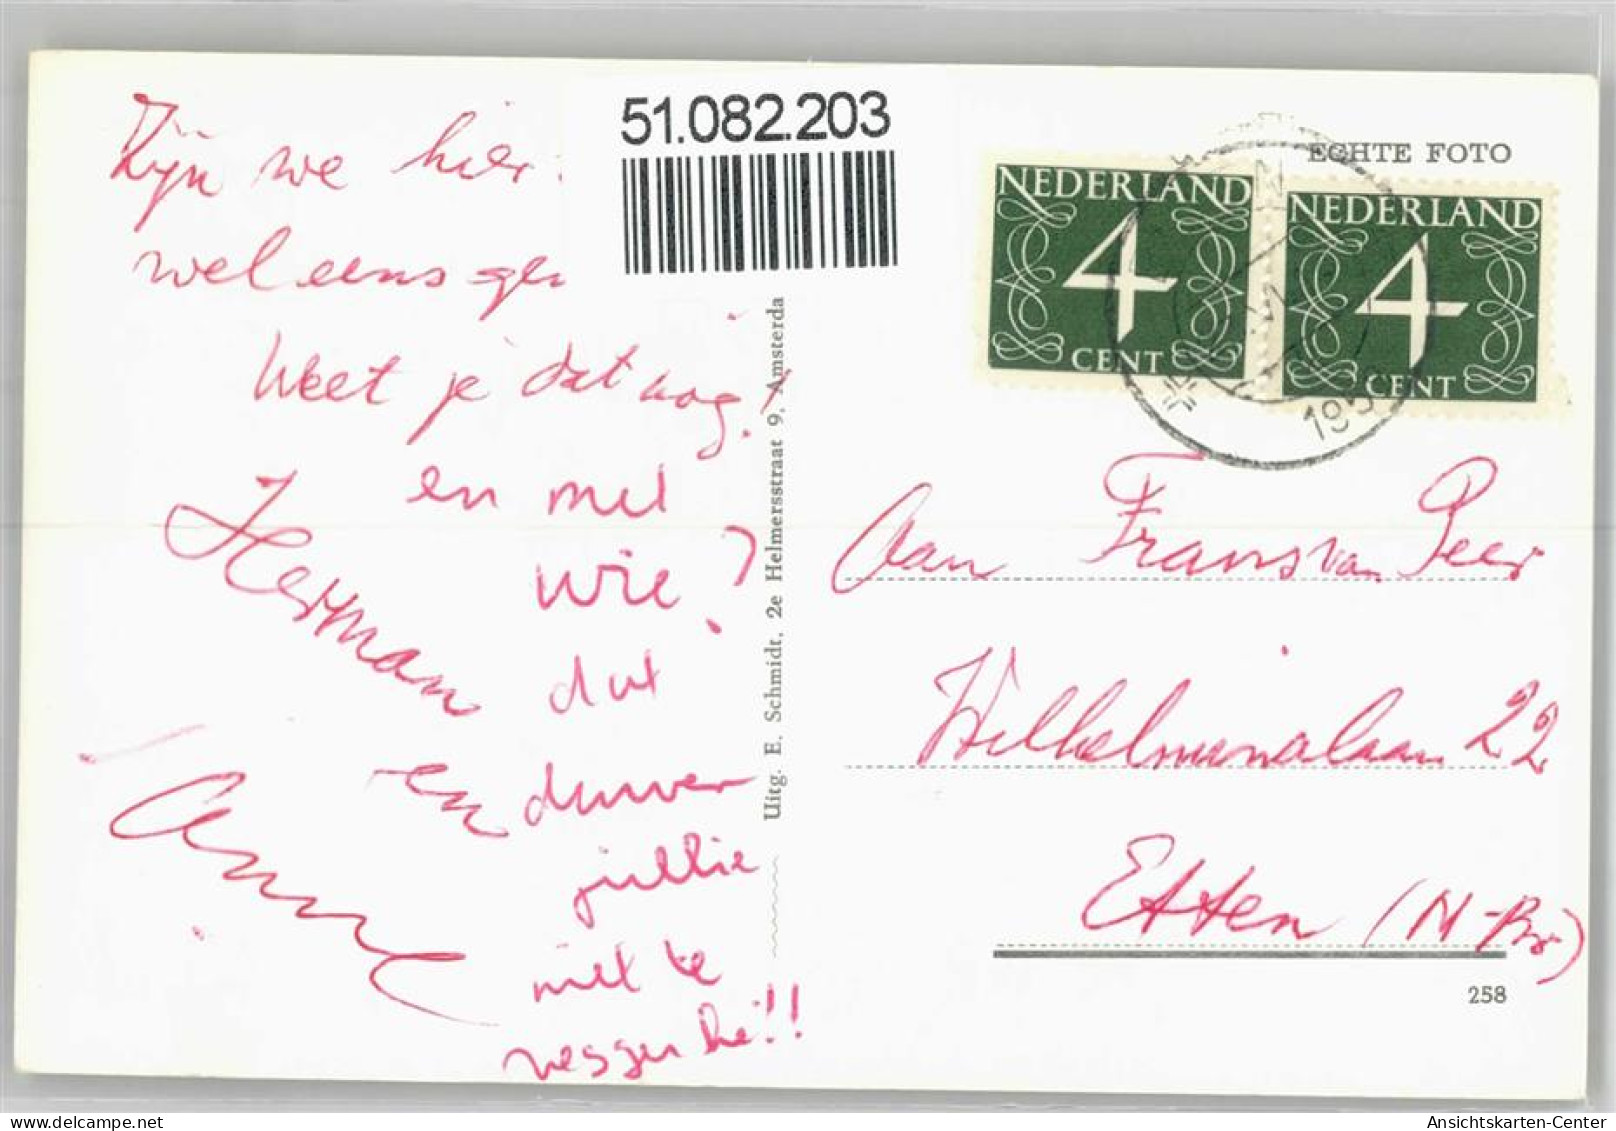 51.082.203
Zijn we hier
wel eens ge
Weet je dat nog?
en met
wie?
dat
en duwen
jullie
niet te
Herman
Anne
Uitg. E. Schmidt, 2e Helmersstraat 9, Amsterda
ECHTE FOTO
NEDERLAND
4
CENT
NEDERLAND
4
CENT
195
Aan Frans van Peer
Wilhelminalaan 22
Etten (N-Br)
258
AnsichtsKarten-Center